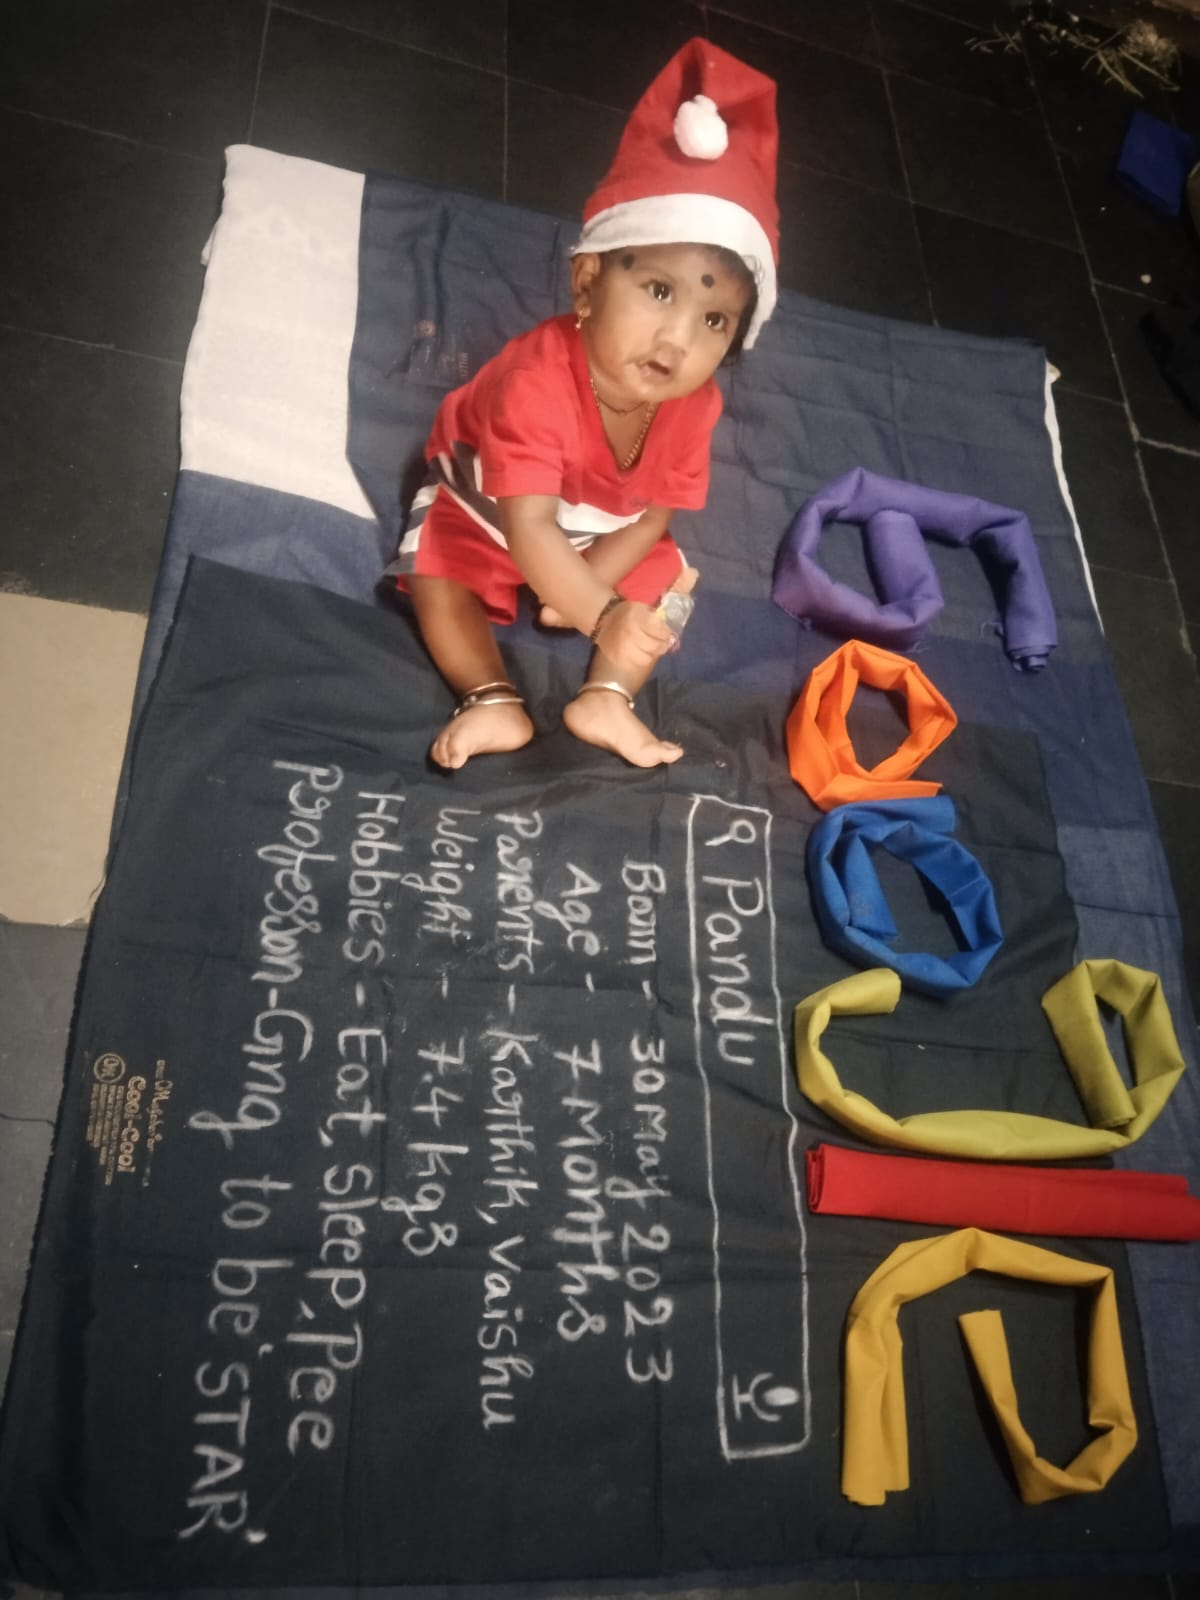 Google
Pandu
Born - 30 May 2023
Age - 7 Months
Parents - Karthik, vaishu
Weight - 7.4 kgs
Hobbies - Eat, sleep, Pee
Professon - Gng to be 'STAR'
Cool-Cool